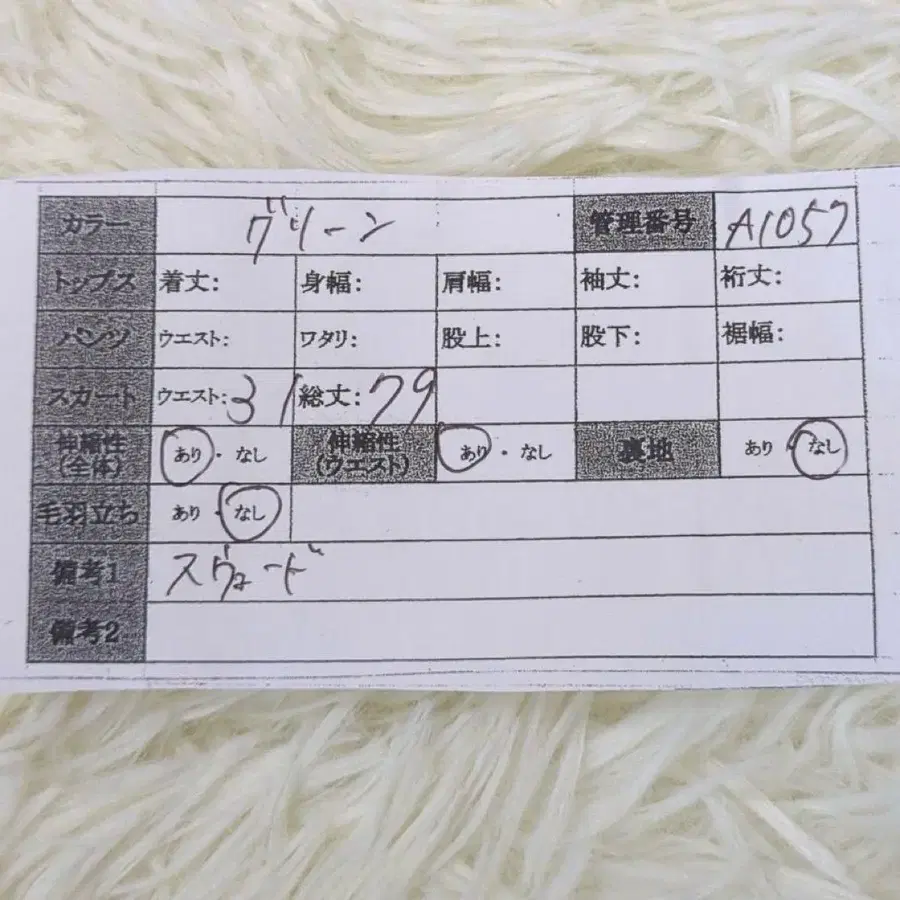 カラー グリーン 管理番号 A1057
トップス 着丈: 身幅: 肩幅: 袖丈: 裄丈:
パンツ ウエスト: ワタリ: 股上: 股下: 裾幅:
スカート ウエスト:31 総丈:79
伸縮性(全体) あり・なし 伸縮性(ウエスト) あり・なし 裏地 あり・なし
毛羽立ち あり・なし
備考1 スヴェード
備考2